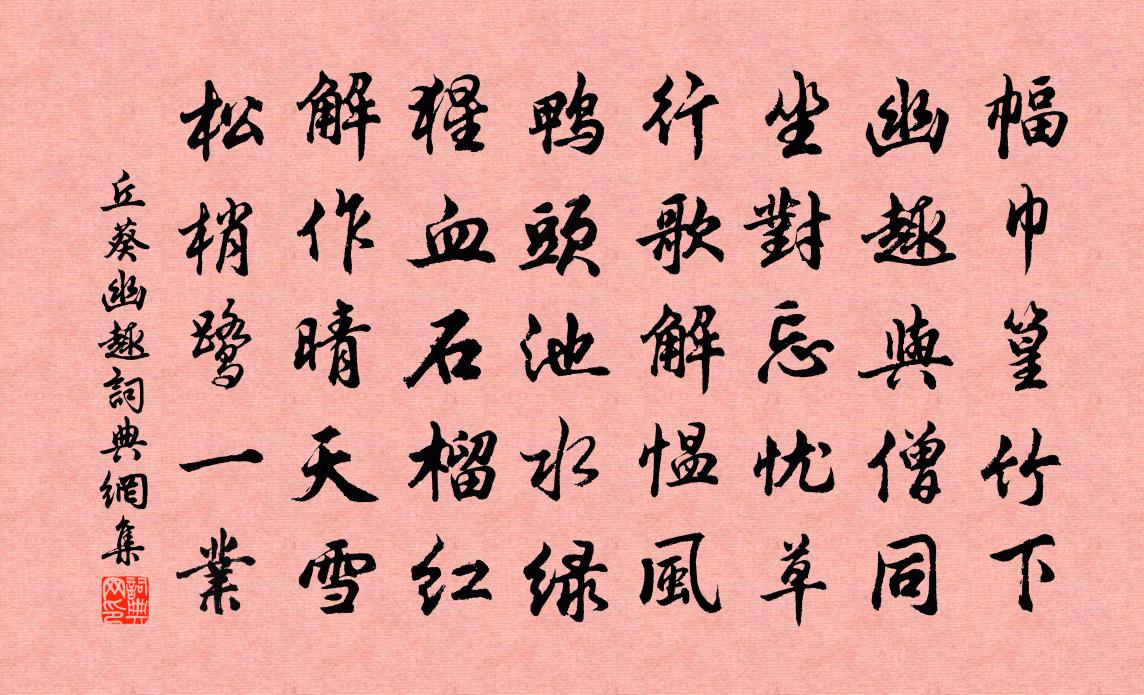 幅巾篁竹下
幽趣與僧同
坐對忘忧草
行歌解愠風
鴨頭池水绿
猩血石榴红
解作晴天雪
松梢鹭一業
丘葵幽趣詞典網集
詞典网印